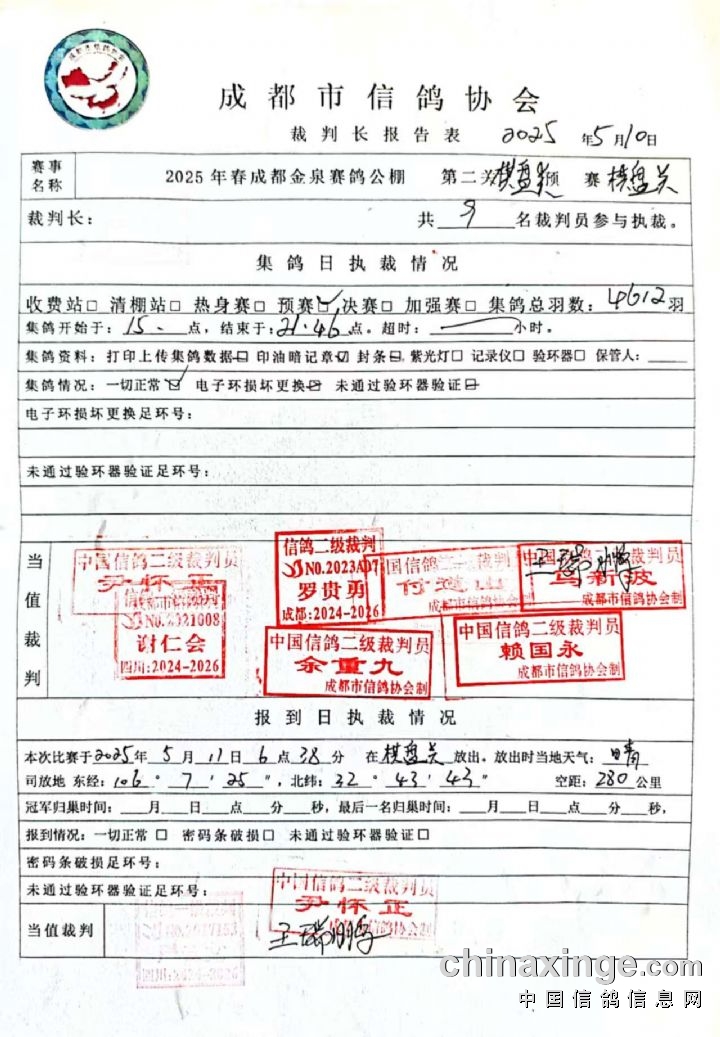 成都市信鸽协会
裁判长报告表 2025年5月10日
赛事名称 2025年春成都金泉赛鸽公棚 第二关棋盘关预赛 棋盘关
裁判长： 共9名裁判员参与执裁。
集鸽日执裁情况
收费站□ 清棚站□ 热身赛□ 预赛☑ 决赛□ 加强赛□ 集鸽总羽数：4612羽
集鸽开始于：15.点，结束于：21.46点。超时：—小时。
集鸽资料：打印上传集鸽数据□ 印油暗记章□ 封条□ 紫光灯□ 记录仪□ 验环器□ 保管人：
集鸽情况：一切正常☑ 电子环损坏更换□ 未通过验环器验证□
电子环损坏更换足环号：
未通过验环器验证足环号：
当值裁判
中国信鸽二级裁判员
尹怀正
信鸽二级裁判
NO.2023A07
罗贵勇
成都：2024-2026
国信鸽二级裁判
中国信鸽二级裁判员
成都市信鸽协会制
NO.2021008
谢仁会
四川：2024-2026
中国信鸽二级裁判员
余重九
成都市信鸽协会制
中国信鸽二级裁判员
赖国永
成都市信鸽协会制
报到日执裁情况
本次比赛于2025年5月11日6点38分 在棋盘关放出。放出时当地天气：晴
司放地 东经：106°7′25″，北纬：32°43′43″ 空距：280公里
冠军归巢时间：__月__日__点__分__秒，最后一名归巢时间：__月__日__点__分__秒，
报到情况：一切正常□ 密码条破损□ 未通过验环器验证□
密码条破损足环号：
未通过验环器验证足环号：
当值裁判
中国信鸽二级裁判员
尹怀正
成都市信鸽协会制
chinaxinge.com
中国信鸽信息网